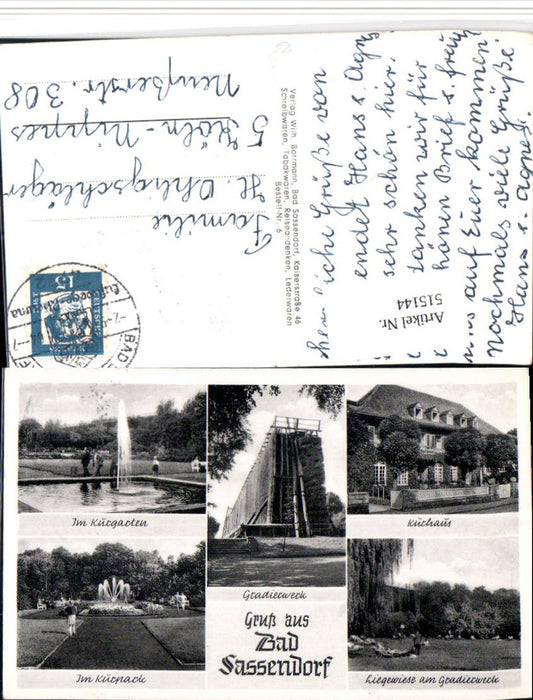 Neußerstr. 308
5 Köln-Nippes
H. Ohligschläger
Familie
Verlag Wilh. Borrmann, Bad Sassendorf, Kaiserstraße 46
Schreibwaren, Tabakwaren, Reiseandenken, Lederwaren
Bestell-Nr. 6
15
BAD
liche Grüße von
endet Hans u. Agnes
sehr schön hier.
danken wir für
Brief u. freuen
uns auf Euer kommen
Nochmals viele Grüße
Hans u. Agnes.
Artikel Nr.
515144
Im Kurgarten
Gradierwerk
Kurhaus
Im Kurpark
Gruß aus
Bad
Sassendorf
Liegewiese am Gradierwerk